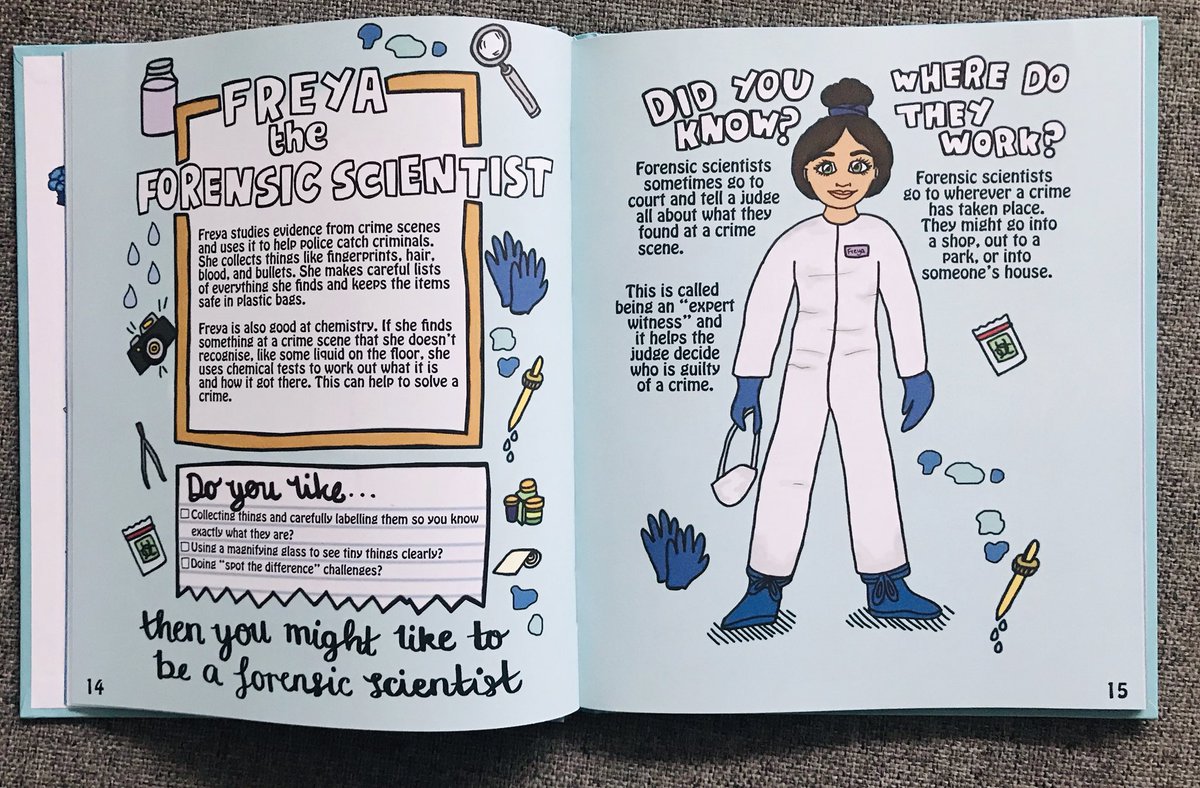 FREYA
the
FORENSIC SCIENTIST
Freya studies evidence from crime scenes
and uses it to help police catch criminals.
She collects things like fingerprints, hair,
blood, and bullets. She makes careful lists
of everything she finds and keeps the items
safe in plastic bags.
Freya is also good at chemistry. If she finds
something at a crime scene that she doesn't
recognise, like some liquid on the floor, she
uses chemical tests to work out what it is
and how it got there. This can help to solve a
crime.
Do you like...
Collecting things and carefully labelling them so you know
exactly what they are?
Using a magnifying glass to see tiny things clearly?
Doing "spot the difference" challenges?
then you might like to
be a forensic scientist
14
DID YOU
KNOW?
Forensic scientists
sometimes go to
court and tell a judge
all about what they
found at a crime
scene.
This is called
being an "expert
witness" and
it helps the
judge decide
who is guilty
of a crime.
FREYA
WHERE DO
THEY
WORK?
Forensic scientists
go to wherever a crime
has taken place.
They might go into
a shop, out to a
park, or into
someone's house.
15